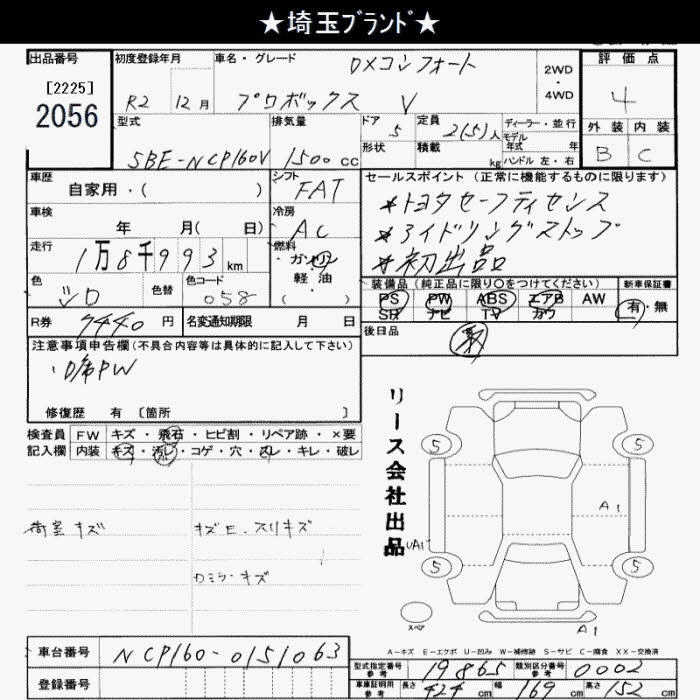 ★埼玉ﾌﾞﾗﾝﾄﾞ★
出品番号 初度登録年月 車名・グレード DXコンフォート 2WD・4WD 評価点
[2225]
2056
R2 12月 プロボックス V 4
型式 排気量 ドア 5 定員 2(5)人 ディーラー・並行
モデル年式 年 外装 内装
5BE-NCP160V 1500cc 形状 積載 kg ハンドル 左・右 B C
車歴 自家用・( ) シフト FAT セールスポイント (正常に機能するものに限ります)
車検 年 月( 日) 冷房 AC
*トヨタセーフティセンス
*アイドリングストップ
*初出品
走行 1万8千993km 燃料 ガソリン 軽・油 ( )
色 色替 色コード 058
装備品 (純正品に限り○をつけてください) 新車保証書
PS PW ABS エアB AW 有・無
SR ナビ TV カワ
R券 7440円 名変通知期限 月 日 後日品
注意事項申告欄(不具合内容等は具体的に記入して下さい)
修復歴 有 [箇所 ]
リース会社出品
検査員 FW キズ・飛石・ヒビ割・リペア跡・×要
記入欄 内装 キズ・汚レ・コゲ・穴・スレ・キレ・破レ
荷室キズ キズE.スリキズ
カミラーキズ
5 5
A1
UA1
5 5
スペア A1
A-キズ E-エクボ U-凹み W-補修跡 S-サビ C-腐食 XX-交換済
車台番号 NCP160-0151063
型式指定番号 参考 19865 類別区分番号 参考 0002
登録番号 車庫証明用 参考 長さ 424cm 幅 169cm 高さ 152cm